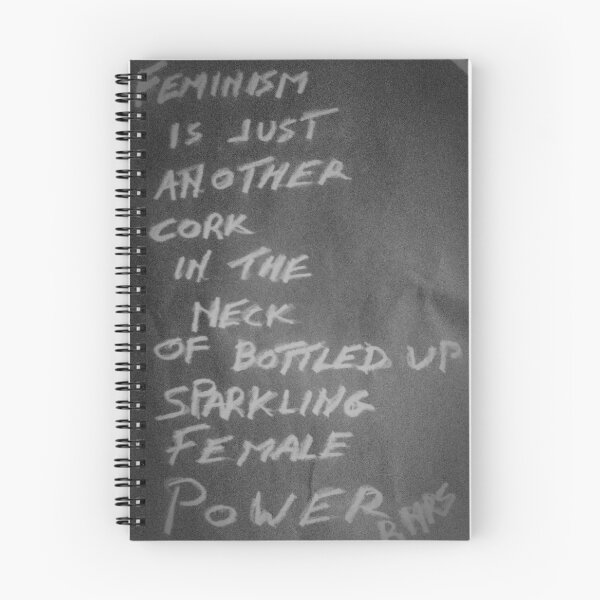 FEMINISM
IS JUST
ANOTHER
CORK
IN THE
NECK
OF BOTTLED UP
SPARKLING
FEMALE
POWER